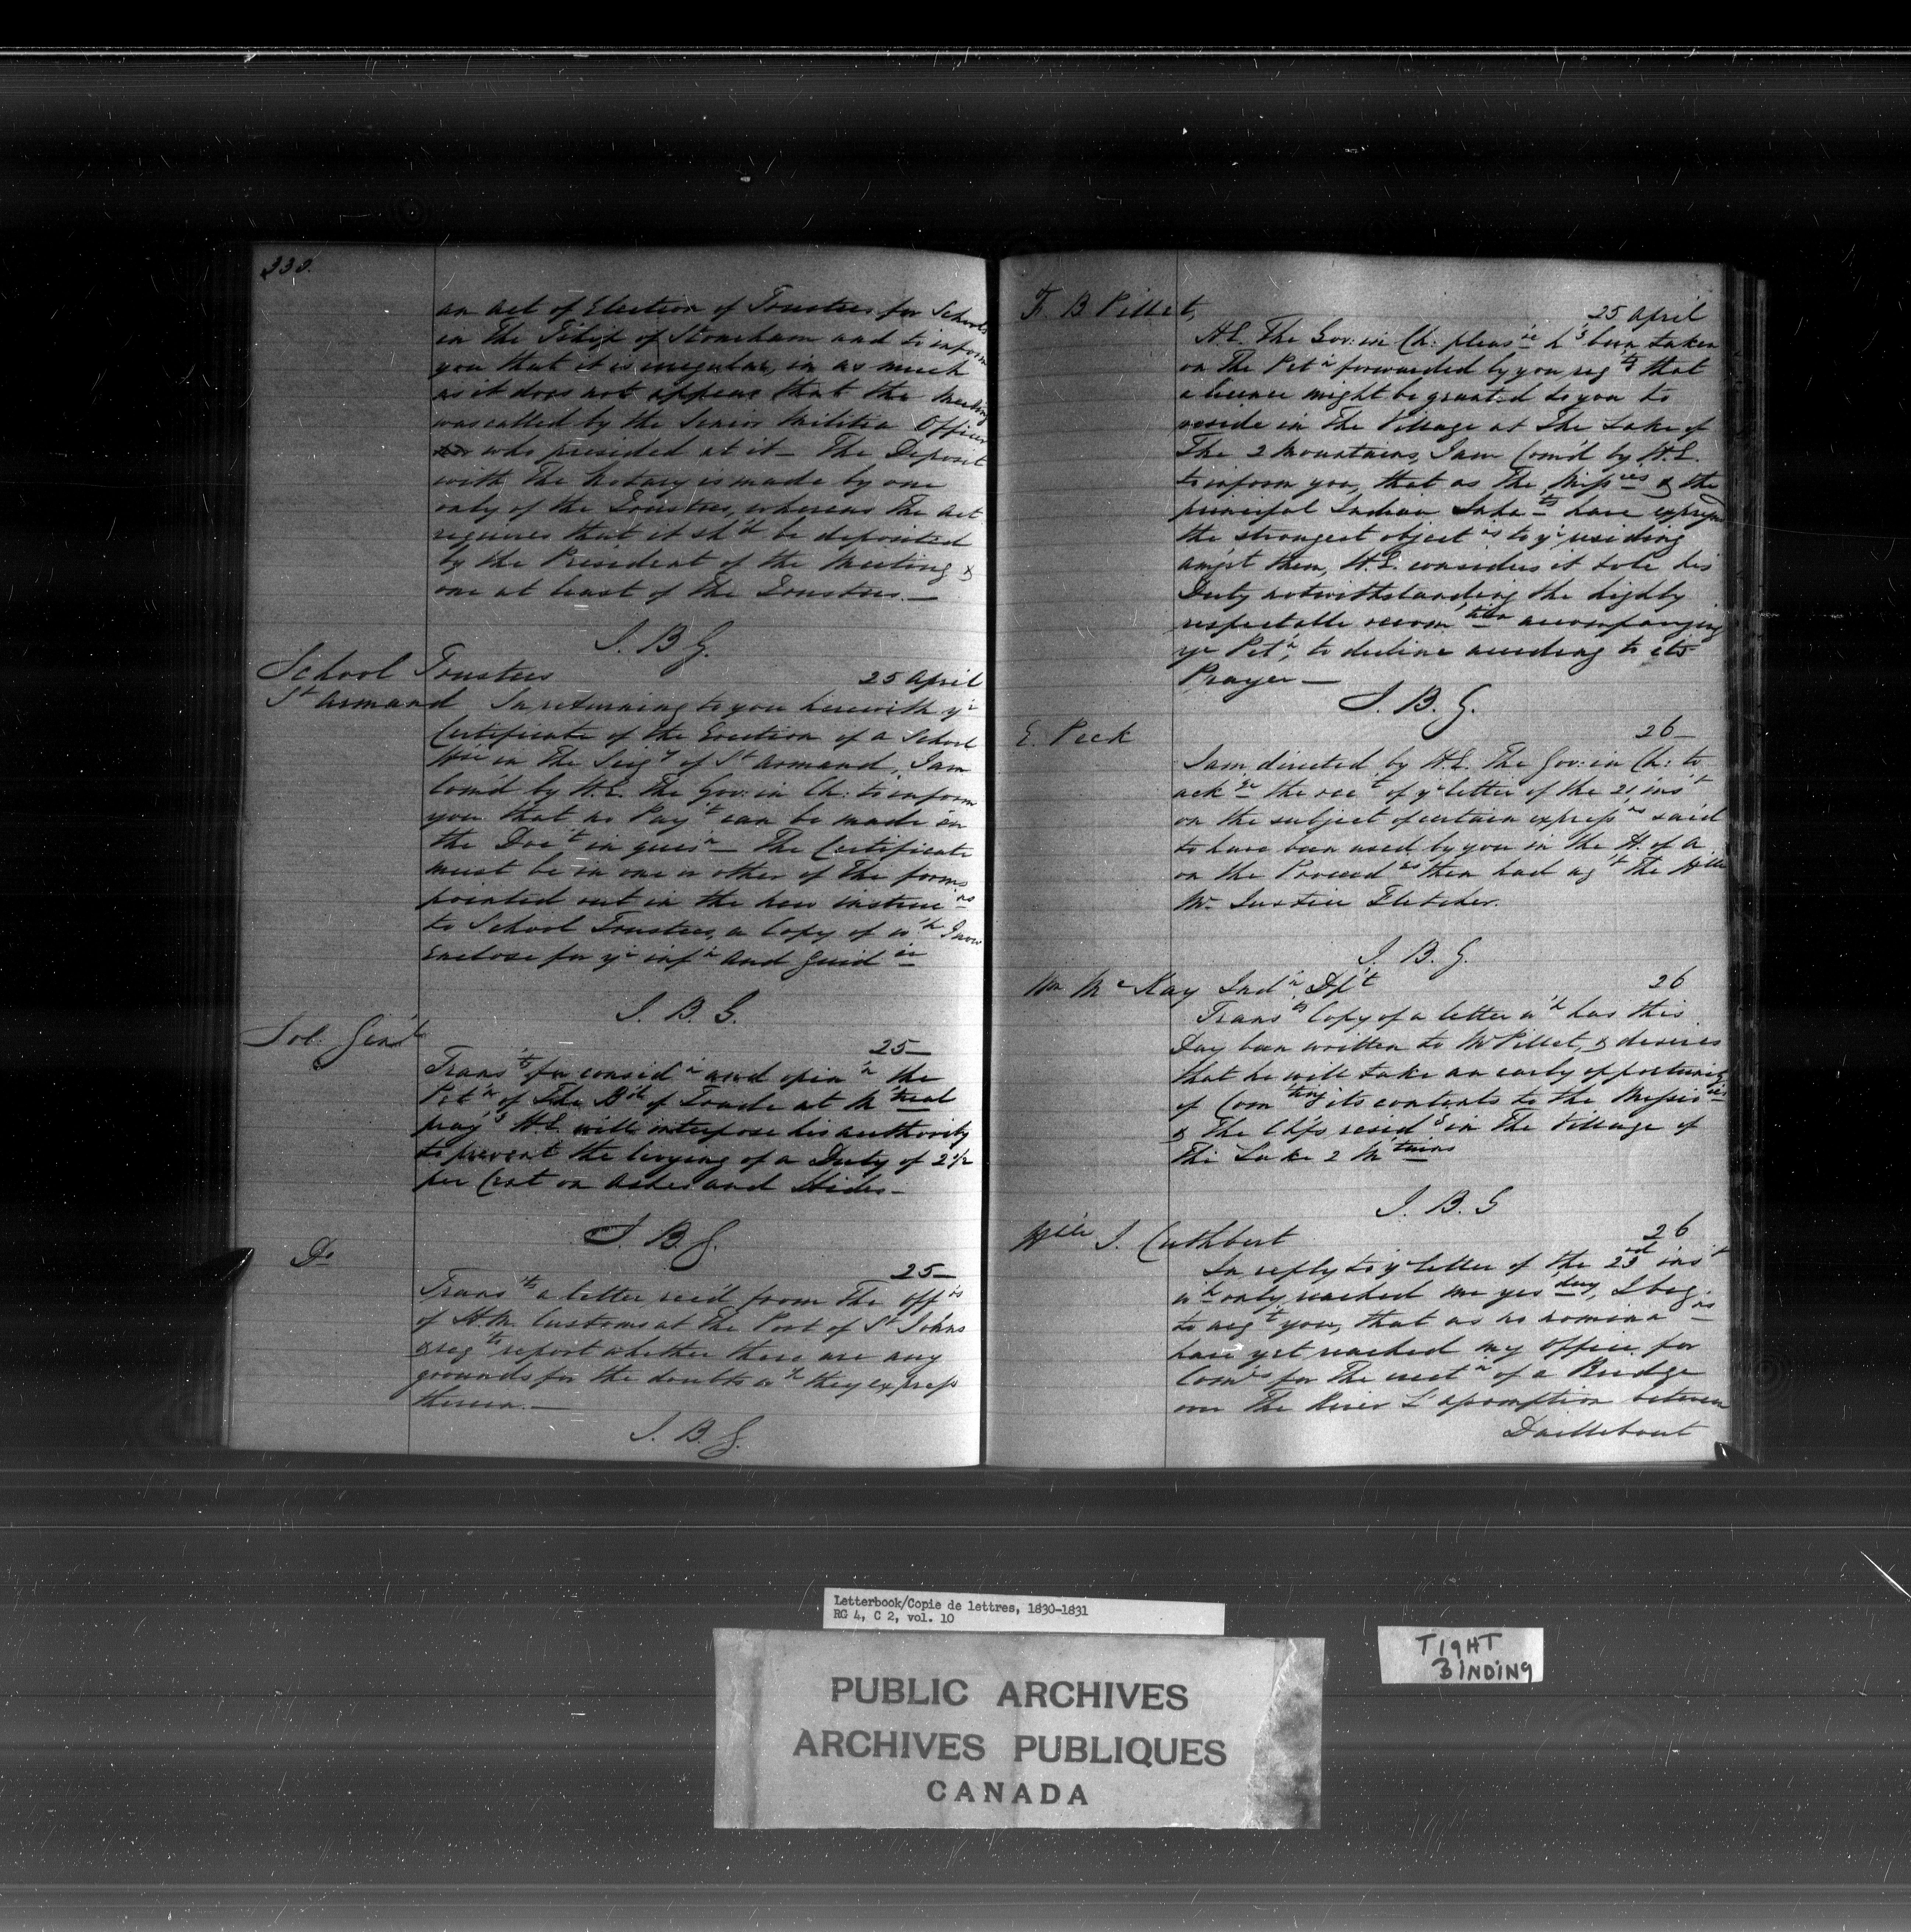 330.
an Act of Election of Trustees for Schools
in The T'ship of Stoneham and to inform
you that it is irregular, in as much
as it does not appear that the Meeting
was called by the Senior Militia Officer
who presided at it — The Deposit
with The Notary is made by one
only of the Trustees, whereas The Act
requires that it sh'd be deposited
by the President of the Meeting &
one at least of the Trustees. —
J. B. G.
School Trustees
25 April
St Armand In returning to you herewith yr
Certificate of the Erection of a School
Hse in The Seigy of St Armand, I am
Com'd by H.E. The Gov: in Ch: to inform
you that no Pay't can be made on
the Doct in quesn — The Certificate
must be in one or other of The forms
pointed out in the new instructns
to School Trustees, a Copy of wch I now
Enclose for yr infn and Guidce
J. B. G.
Sol: Genl
25 —
Trans'ts for considn and opinn the
Pet'n of The B'd of Trade at M'treal
pray'g H.E. will interpose his authority
to prevent the levying of a Duty of 2 1/2
per Cent on Ashes and Hides —
J. B. G.
Do
25 —
Trans'ts a letter rec'd from The Offrs
of H.M. Customs at The Port of St Johns
& reqts report whether there are any
grounds for the doubts wch they express
therein. —
J. B. G.
F. B Pillet,
25 April
H.E. The Gov: in Ch: pleasre h's been taken
on The Petn forwarded by you reqtg that
a licence might be granted to you to
reside in The Village at The Lake of
The 2 Mountains, I am Com'd by H.E.
to inform you, that as The Missries & the
principal Indian Inhabts have expressed
the strongest objectns to yr residing
am'gst them, H.E. considers it to be his
Duty notwithstanding the highly
respectable recomm'tion accompanying
yr Petn, to decline acceding to its
Prayer —
J. B. G.
E. Peck
26 —
I am directed by H.E. The Gov: in Ch: to
ackge the rect of yr letter of the 21 inst
on the subject of certain expressns said
to have been used by you in the H. of A.
on the Proceedgs then had agt The Hble
Mr Justice Fletcher.
J. B. G.
Wm McKay Indn Dpt
26
Trans'ts Copy of a letter wch has this
Day been written to Mr Pillet, & desires
that he will take an early opportunity
of Com'ting its contents to the Missiories
& The Chfs residg in The Village of
The Lake 2 M'tains
J. B. G
Hble J. Cuthbert
26
In reply to yr letter of the 23rd inst
wch only reached me yesday, I beg
to acqt you, that as no nominans
have yet reached my Office for
Comrs for The erectn of a Bridge
over The River L'assomption between
Daillebout
Letterbook/Copie de lettres, 1830-1831
RG 4, C 2, vol. 10
PUBLIC ARCHIVES
ARCHIVES PUBLIQUES
CANADA
TIGHT
BINDING